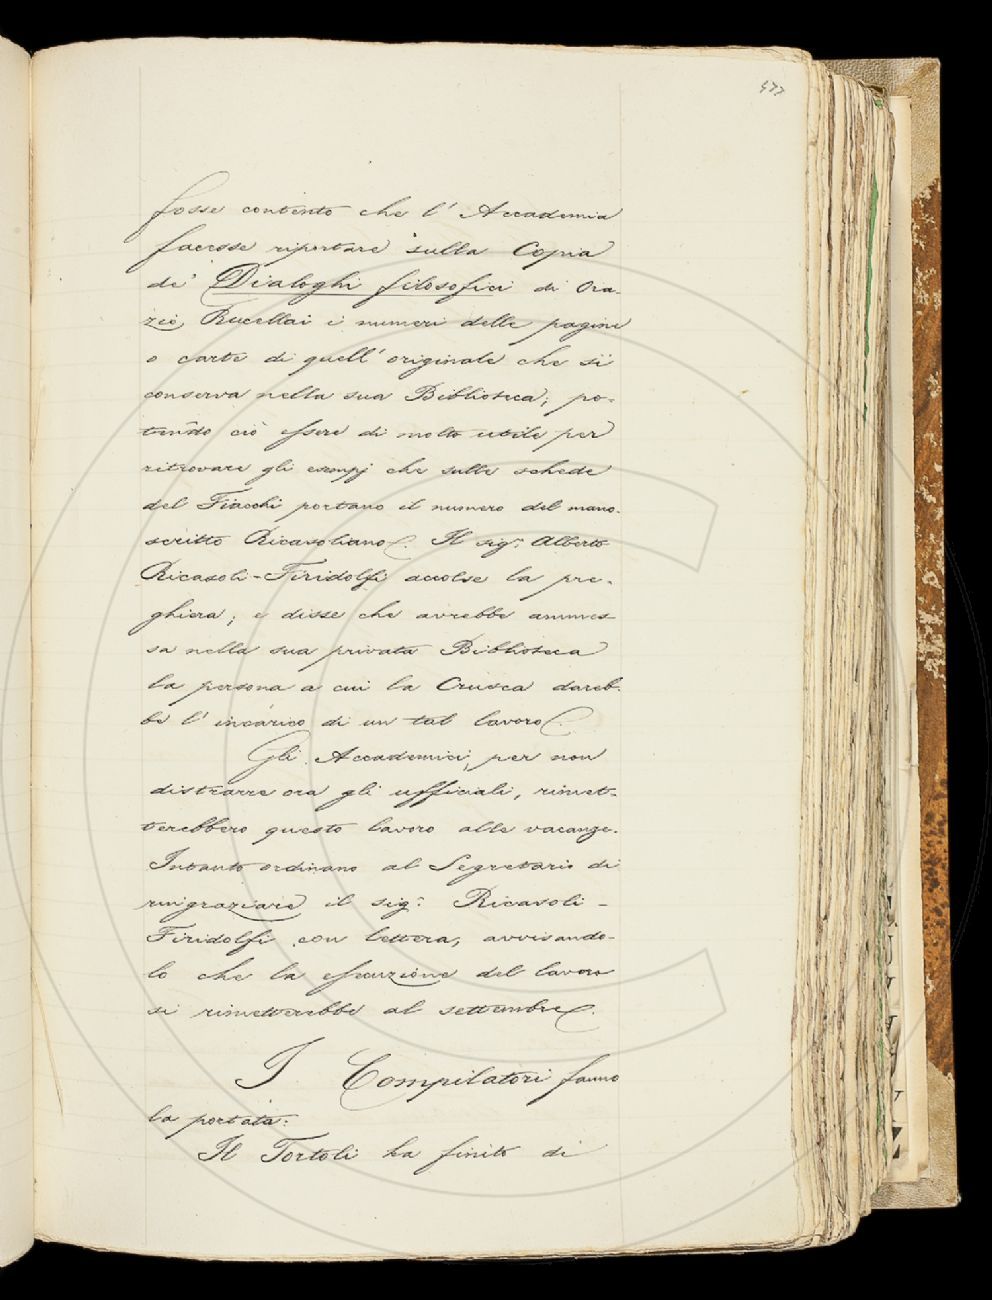 477
fosse contento che l' Accademia
facesse riportare sulla Copia
de' Dialoghi filosofici di Ora-
zio Rucellai i numeri delle pagine
o carte di quell' originale che si
conserva nella sua Biblioteca; po-
tendo ciò essere di molto utile per
ritrovare gli esempj che sulle schede
del Fiacchi portano il numero del mano-
scritto Ricasoliano. Il sig.r Alberto
Ricasoli-Firidolfi accolse la pre-
ghiera; e disse che avrebbe ammes-
sa nella sua privata Biblioteca
la persona a cui la Crusca dareb-
be l' incarico di un tal lavoro.
Gli Accademici, per non
distrarre ora gli ufficiali, rimet-
terebbero questo lavoro alle vacanze.
Intanto ordinano al Segretario di
ringraziare il sig.r Ricasoli-
Firidolfi con lettera, avvisando-
lo che la esecuzione del lavoro
si rimetterebbe al settembre.
I Compilatori fanno
la portata:
Il Tortoli ha finito di